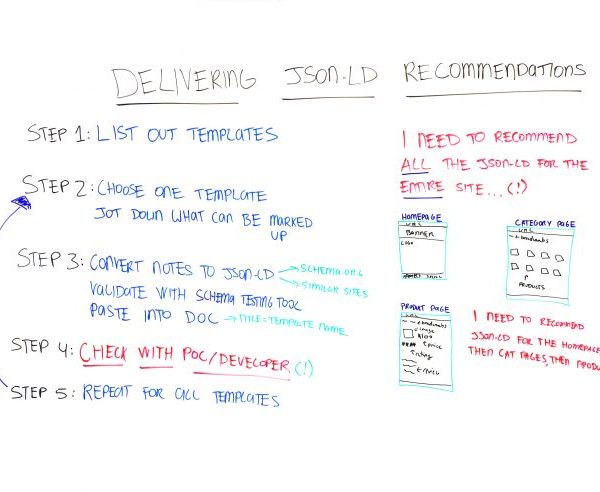 DELIVERING JSON-LD RECOMMENDATIONS
STEP 1: LIST OUT TEMPLATES
STEP 2: CHOOSE ONE TEMPLATE
JOT DOWN WHAT CAN BE MARKED
UP
STEP 3: CONVERT NOTES TO JSON-LD
SCHEMA.ORG
SIMILAR SITES
VALIDATE WITH SCHEMA TESTING TOOL
PASTE INTO DOC → TITLE=TEMPLATE NAME
STEP 4: CHECK WITH POC/DEVELOPER (!)
STEP 5: REPEAT FOR ALL TEMPLATES
I NEED TO RECOMMEND
ALL THE JSON-LD FOR THE
ENTIRE SITE...(!)
HOMEPAGE
URL
BANNER
LOGO
CATEGORY PAGE
URL
breadcrumbs
PRODUCTS
PRODUCT PAGE
URL
breadcrumbs
image
price
rating
review
I NEED TO RECOMMEND
JSON-LD FOR THE HOMEPAGE
THEN CAT PAGES, THEN PRODU